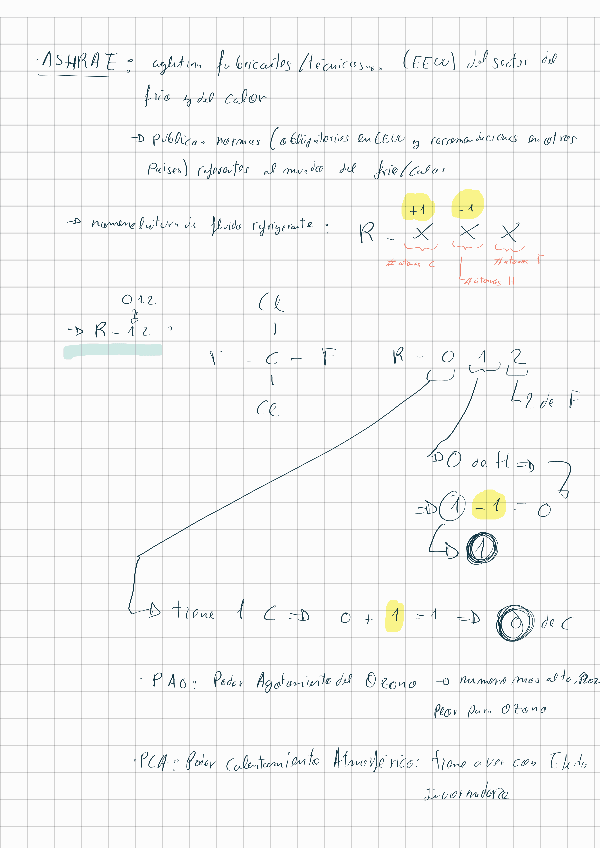 · ASHRAE: aglutina fabricantes/técnicos... (EEUU) del sector del
frío y del calor
→ Publica normas (obligatorias en EEUU y recomendaciones en otros
países) referentes al mundo del frío/calor
+1 -1
→ nomenclatura de fluido refrigerante: R - X X X
# átomos C # átomos F
# átomos H
012
Cl
→ R - 12:
F - C - F R - 0 1 2
Cl
2 de F
→ 0 de H ⇒
⇒ 1 - 1 = 0
→ 1
→ tiene 1 C ⇒ 0 + 1 = 1 ⇒ 0 de C
· PAO: Poder Agotamiento del Ozono → número más alto,
peor para Ozono
· PCA: Poder Calentamiento Atmosférico: tiene a ver con
Invernadero